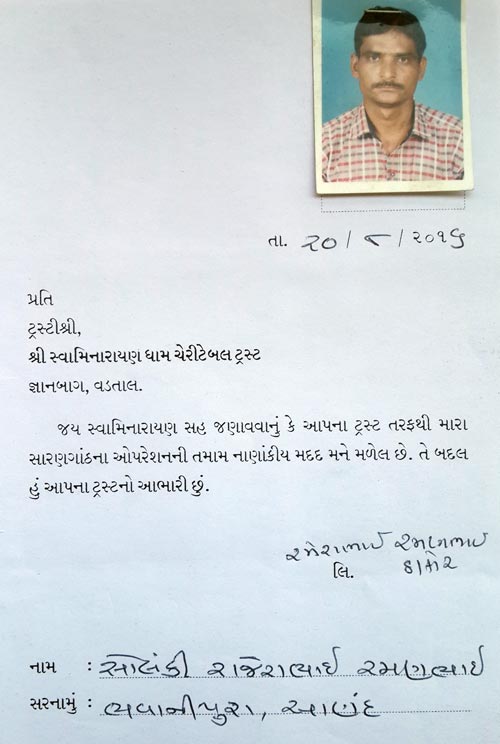 તા. ૨૦/૮/૨૦૧૬
પ્રતિ
ટ્રસ્ટીશ્રી,
શ્રી સ્વામિનારાયણ ધામ ચેરીટેબલ ટ્રસ્ટ
જ્ઞાનબાગ, વડતાલ.
જય સ્વામિનારાયણ સહ જણાવવાનું કે આપના ટ્રસ્ટ તરફથી મારા
સારણગાંઠના ઓપરેશનની તમામ નાણાંકીય મદદ મને મળેલ છે. તે બદલ
હું આપના ટ્રસ્ટનો આભારી છું.
રમેશભાઈ રમણભાઈ
લિ.
નામ : સોલંકી રાજેશભાઈ રમણભાઈ
સરનામું : ભવાનીપુરા, આણંદ